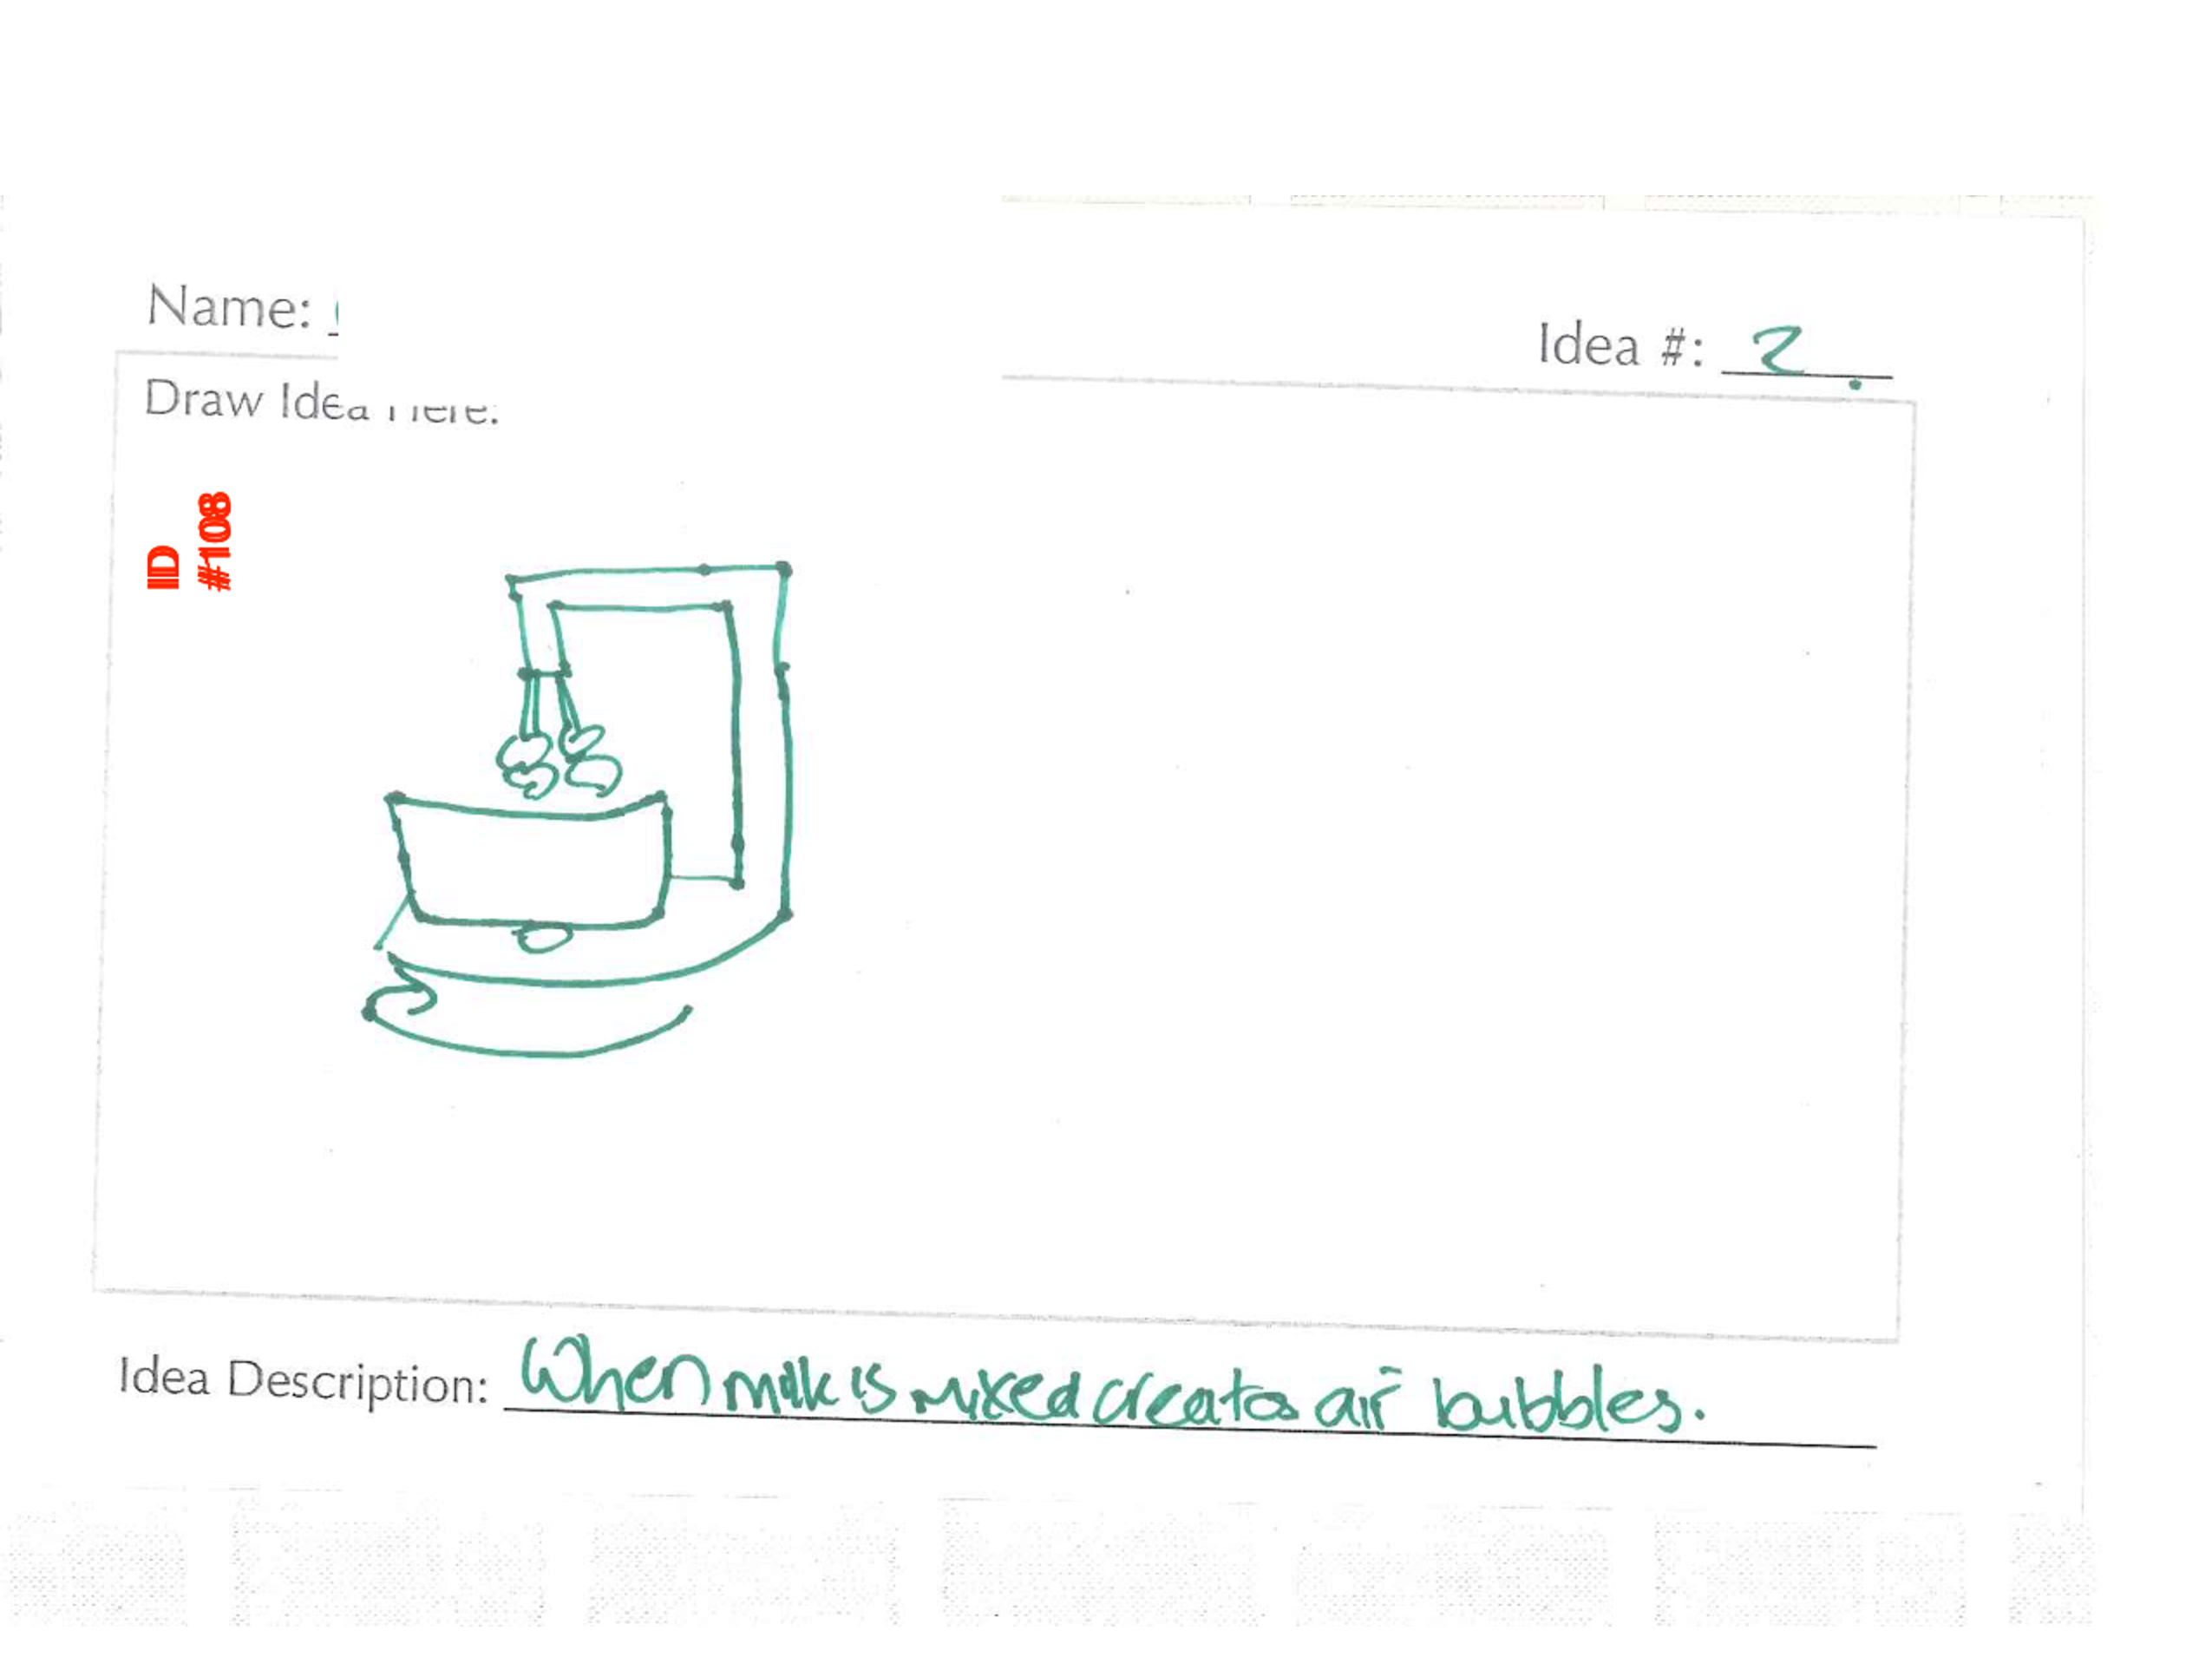 Name:
Idea #: 2
Draw Idea Here:
ID
#108
Idea Description: When milk is mixed creates air bubbles.